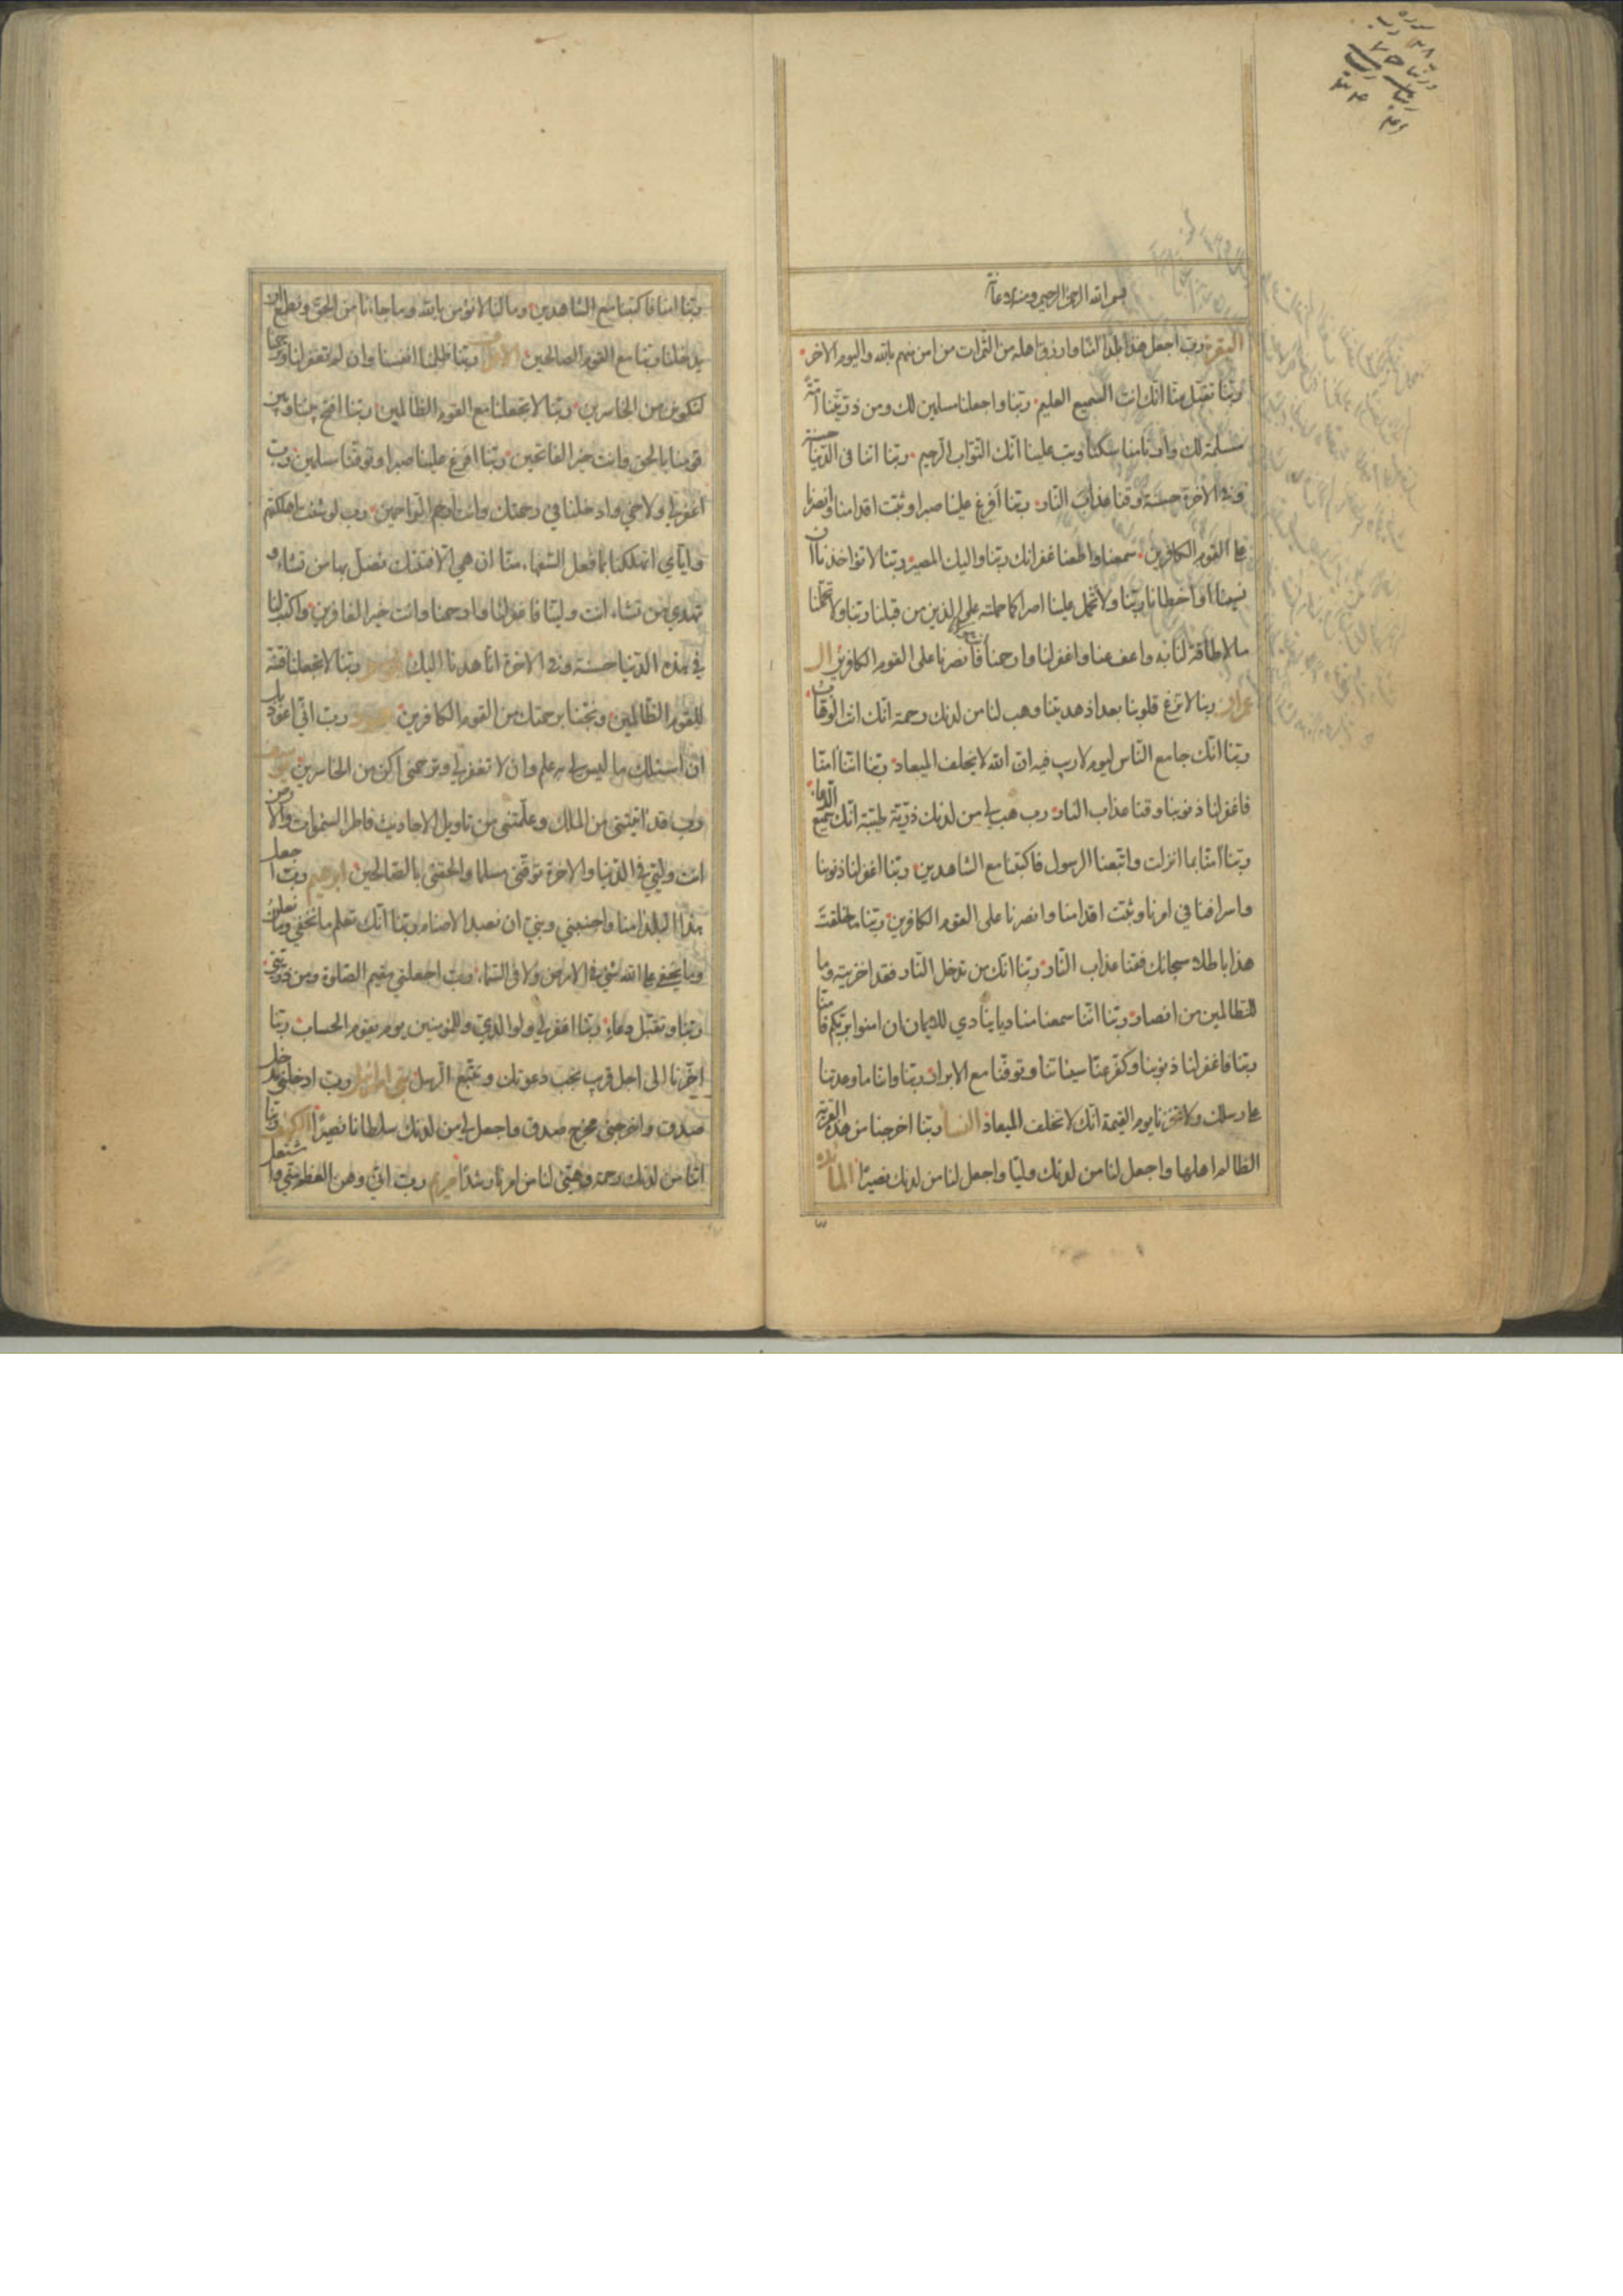 بسم الله الرحمن الرحيم
البقرة رب اجعل هذا بلدا امنا وارزق اهله من الثمرات من امن منهم بالله واليوم الاخر
ربنا تقبل منا انك انت السميع العليم ربنا واجعلنا مسلمين لك ومن ذريتنا امة
مسلمة لك وارنا مناسكنا وتب علينا انك انت التواب الرحيم ربنا اتنا فى الدنيا حسنة
وفي الاخرة حسنة وقنا عذاب النار ربنا أفرغ علينا صبرا وثبت اقدامنا وانصرنا
على القوم الكافرين سمعنا واطعنا غفرانك ربنا واليك المصير ربنا لا تؤاخذنا ان
نسينا او اخطانا ربنا ولا تحمل علينا اصرا كما حملته على الذين من قبلنا ربنا ولا تحملنا
ما لا طاقة لنا به واعف عنا واغفر لنا وارحمنا فانصرنا على القوم الكافرين ال
عمران ربنا لا تزغ قلوبنا بعد اذ هديتنا وهب لنا من لدنك رحمة انك انت الوهاب
ربنا انك جامع الناس ليوم لا ريب فيه ان الله لا يخلف الميعاد ربنا اننا امنا
فاغفر لنا ذنوبنا وقنا عذاب النار رب هب لي من لدنك ذرية طيبة انك سميع الدعاء
ربنا آمنا بما انزلت واتبعنا الرسول فاكتبنا مع الشاهدين ربنا اغفر لنا ذنوبنا
واسرافنا في امرنا وثبت اقدامنا وانصرنا على القوم الكافرين ربنا ما خلقت
هذا باطلا سبحانك فقنا عذاب النار ربنا انك من تدخل النار فقد اخزيته وما
للظالمين من انصار ربنا اننا سمعنا مناديا ينادي للايمان ان امنوا بربكم فامنا
ربنا فاغفر لنا ذنوبنا وكفر عنا سيئاتنا وتوفنا مع الابرار ربنا واتنا ما وعدتنا
على رسلك ولا تخزنا يوم القيمة انك لا تخلف الميعاد النسا ربنا اخرجنا من هذه القرية
الظالم اهلها واجعل لنا من لدنك وليا واجعل لنا من لدنك نصيرا المائده
ربنا امنا فاكتبنا مع الشاهدين وما لنا لا نؤمن بالله وما جاءنا من الحق ونطمع ان
يدخلنا ربنا مع القوم الصالحين الاعراف ربنا ظلمنا انفسنا وان لم تغفر لنا وترحمنا
لنكونن من الخاسرين ربنا لا تجعلنا مع القوم الظالمين ربنا افتح بيننا وبين
قومنا بالحق وانت خير الفاتحين ربنا افرغ علينا صبرا وتوفنا مسلمين رب
اغفر لي ولاخي وادخلنا في رحمتك وانت ارحم الراحمين رب لو شئت اهلكتهم
واياي اتهلكنا بما فعل السفهاء منا ان هي الا فتنتك تضل بها من تشاء و
تهدي من تشاء انت ولينا فاغفر لنا وارحمنا وانت خير الغافرين واكتب لنا
في هذه الدنيا حسنة وفي الاخرة انا هدنا اليك ربنا لا تجعلنا فتنة
للقوم الظالمين ونجنا برحمتك من القوم الكافرين رب اني اعوذ بك
ان اسئلك ما ليس لي به علم وان لا تغفر لي وترحمنى اكن من الخاسرين يوسف
رب قد اتيتنى من الملك وعلمتنى من تاويل الاحاديث فاطر السموات والارض
انت وليي في الدنيا والاخرة توفنى مسلما والحقنى بالصالحين ابرهيم رب اجعل
هذا البلد امنا واجنبني وبني ان نعبد الاصنام ربنا انك تعلم ما نخفي وما نعلن
وما يخفى على الله شئ في الارض ولا في السماء رب اجعلني مقيم الصلوة ومن ذريتى
ربنا وتقبل دعاء ربنا اغفر لي ولوالدي وللمؤمنين يوم يقوم الحساب ربنا
اخرنا الى اجل قريب نجب دعوتك ونتبع الرسل بني اسرائيل رب ادخلني مدخل
صدق واخرجنى مخرج صدق واجعل لي من لدنك سلطانا نصيرا الكهف ربنا
اتنا من لدنك رحمة وهيئ لنا من امرنا رشدا مريم رب اني وهن العظم مني واشتعل